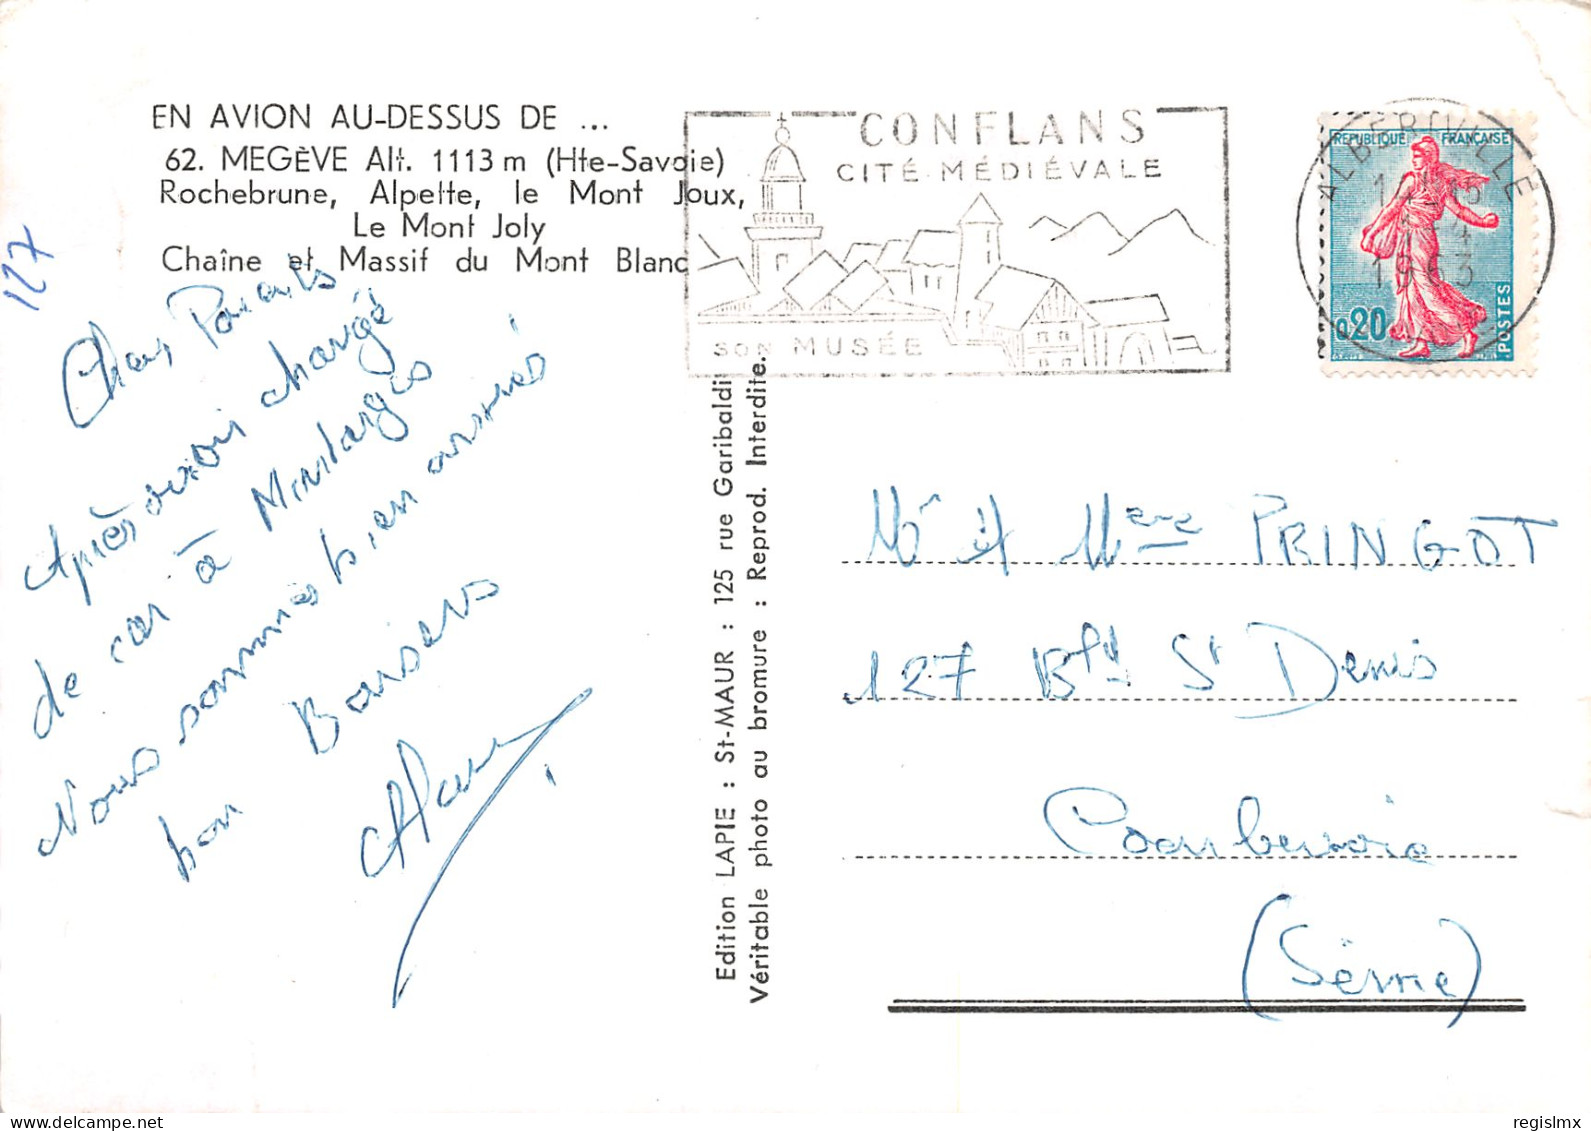 EN AVION AU-DESSUS DE ...
62. MEGÈVE Alt. 1113 m (Hte-Savoie)
Rochebrune, Alpette, le Mont Joux,
Le Mont Joly
Chaîne et Massif du Mont Blanc
127
Chers Parents
Après avoir changé
de car à Montargis
Nous sommes bien arrivés
bon Baisers
Edition LAPIE : St-MAUR : 125 rue Garibaldi
Véritable photo au bromure : Reprod. Interdite.
CONFLANS
CITÉ MÉDIÉVALE
SON MUSÉE
ALBERTVILLE
1963
REPUBLIQUE FRANÇAISE
0,20
POSTES
Mr et Mme PRINGOT
127 Bd St Denis
Courbevoie
(Seine)
delcampe.net
regislmx